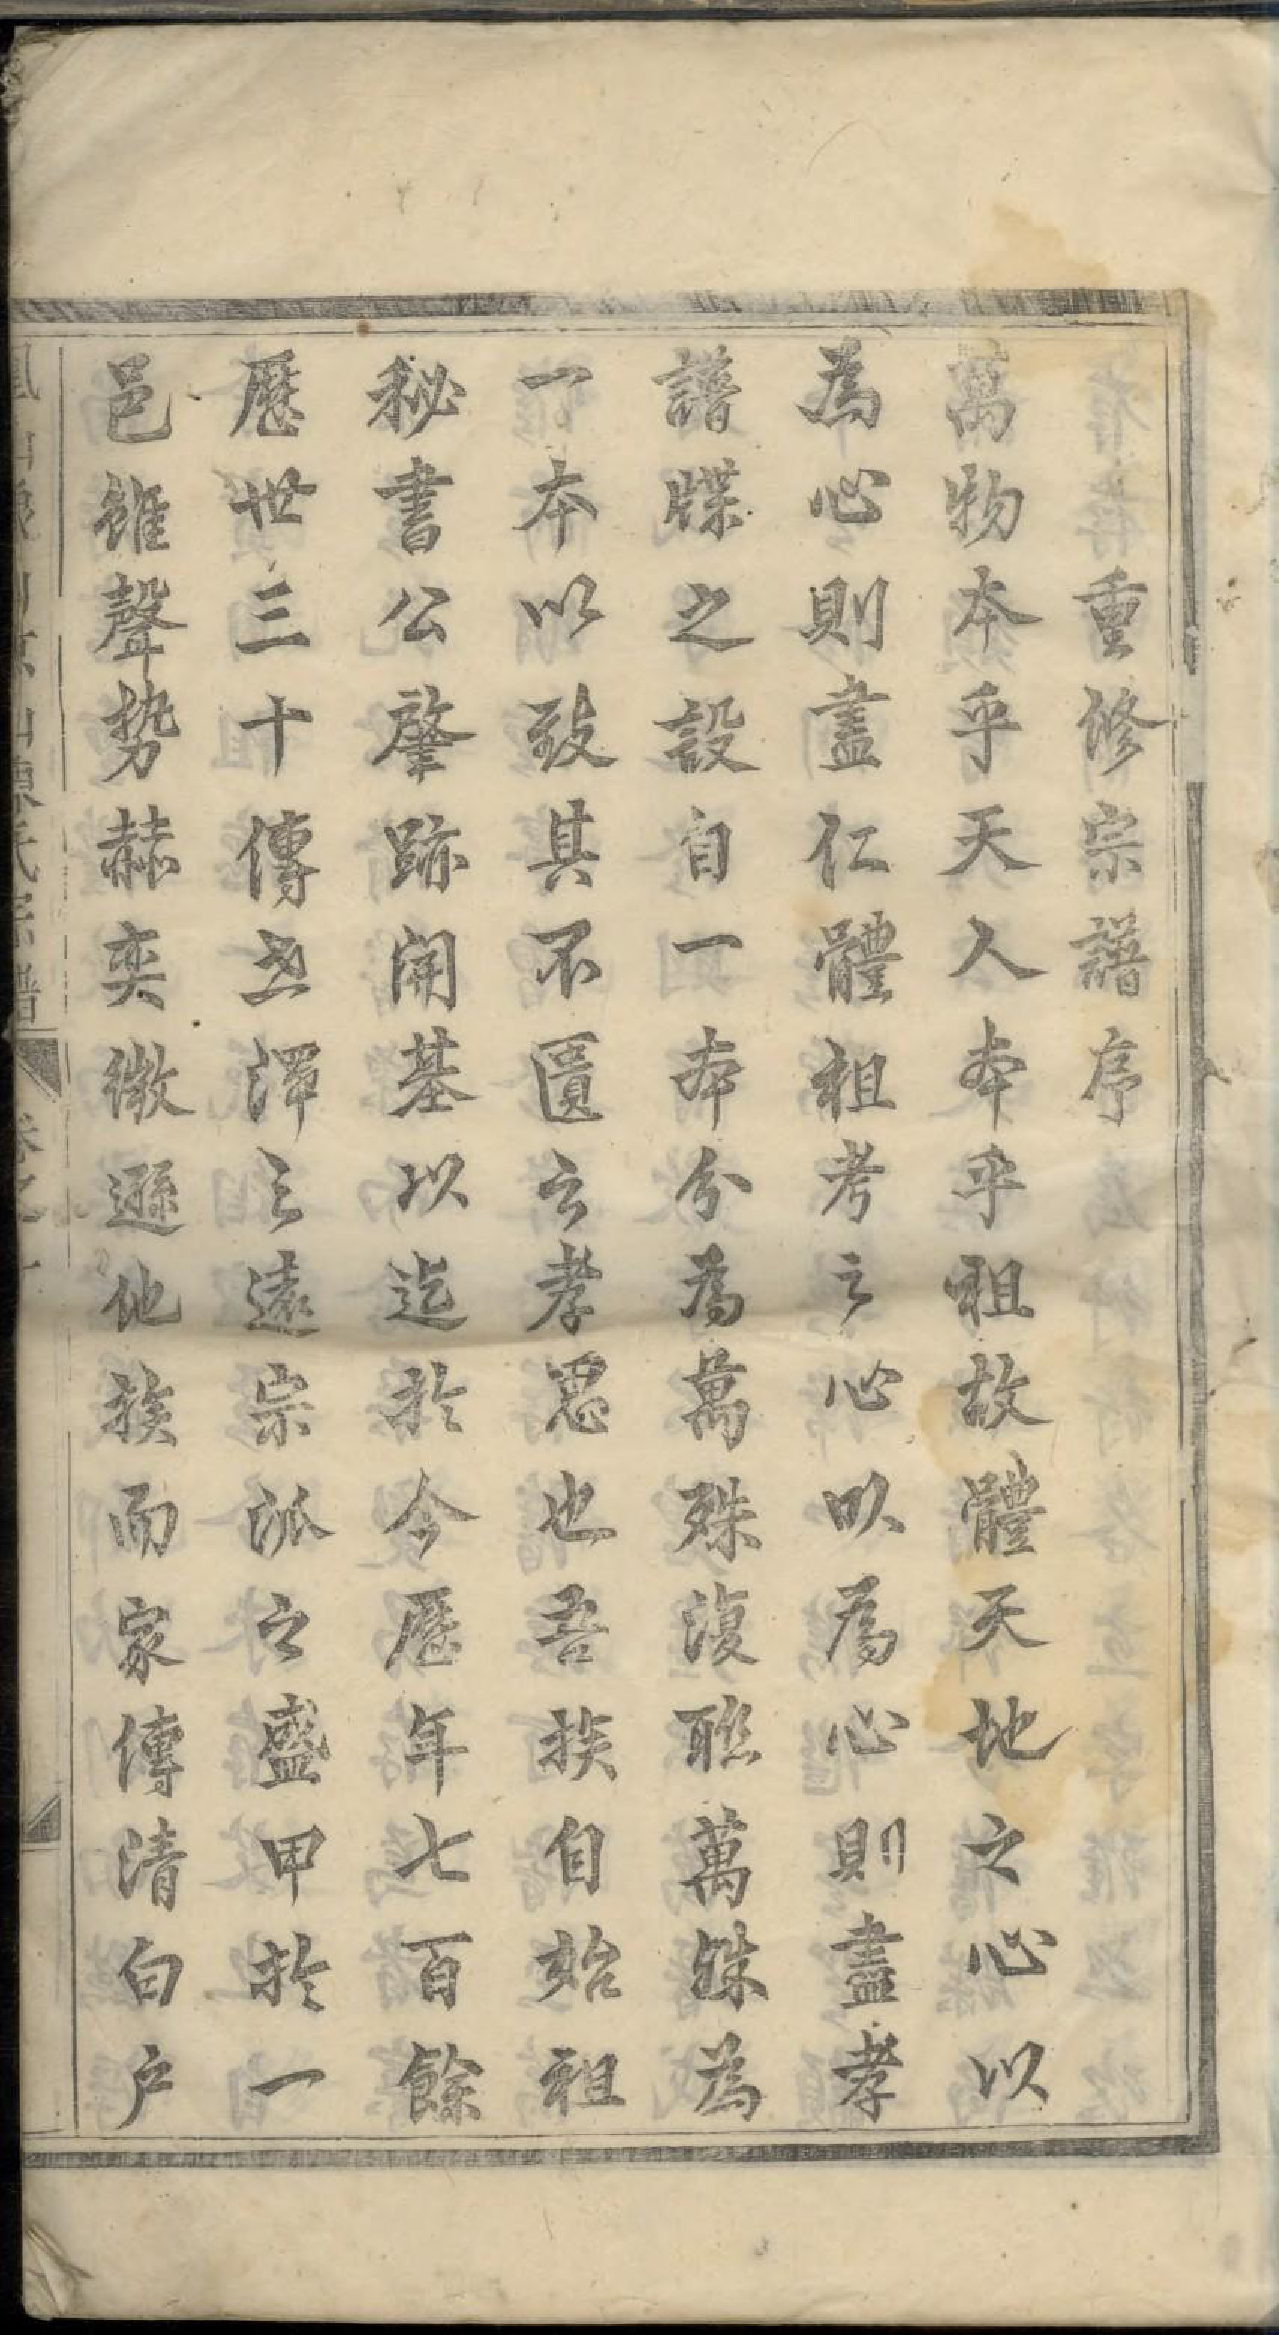 重修宗譜序
萬物本乎天人本乎祖故體天地之心以
為心則盡仁體祖考之心以為心則盡孝
譜牒之設自一本分為萬殊復聯萬殊為
一本以致其不匱之孝思也吾族自始祖
秘書公肇跡開基以迄於今歷年七百餘
歷世三十傳世澤之遠宗派之盛甲於一
邑雖聲勢赫奕微遜他族而家傳清白戶
氏宗譜